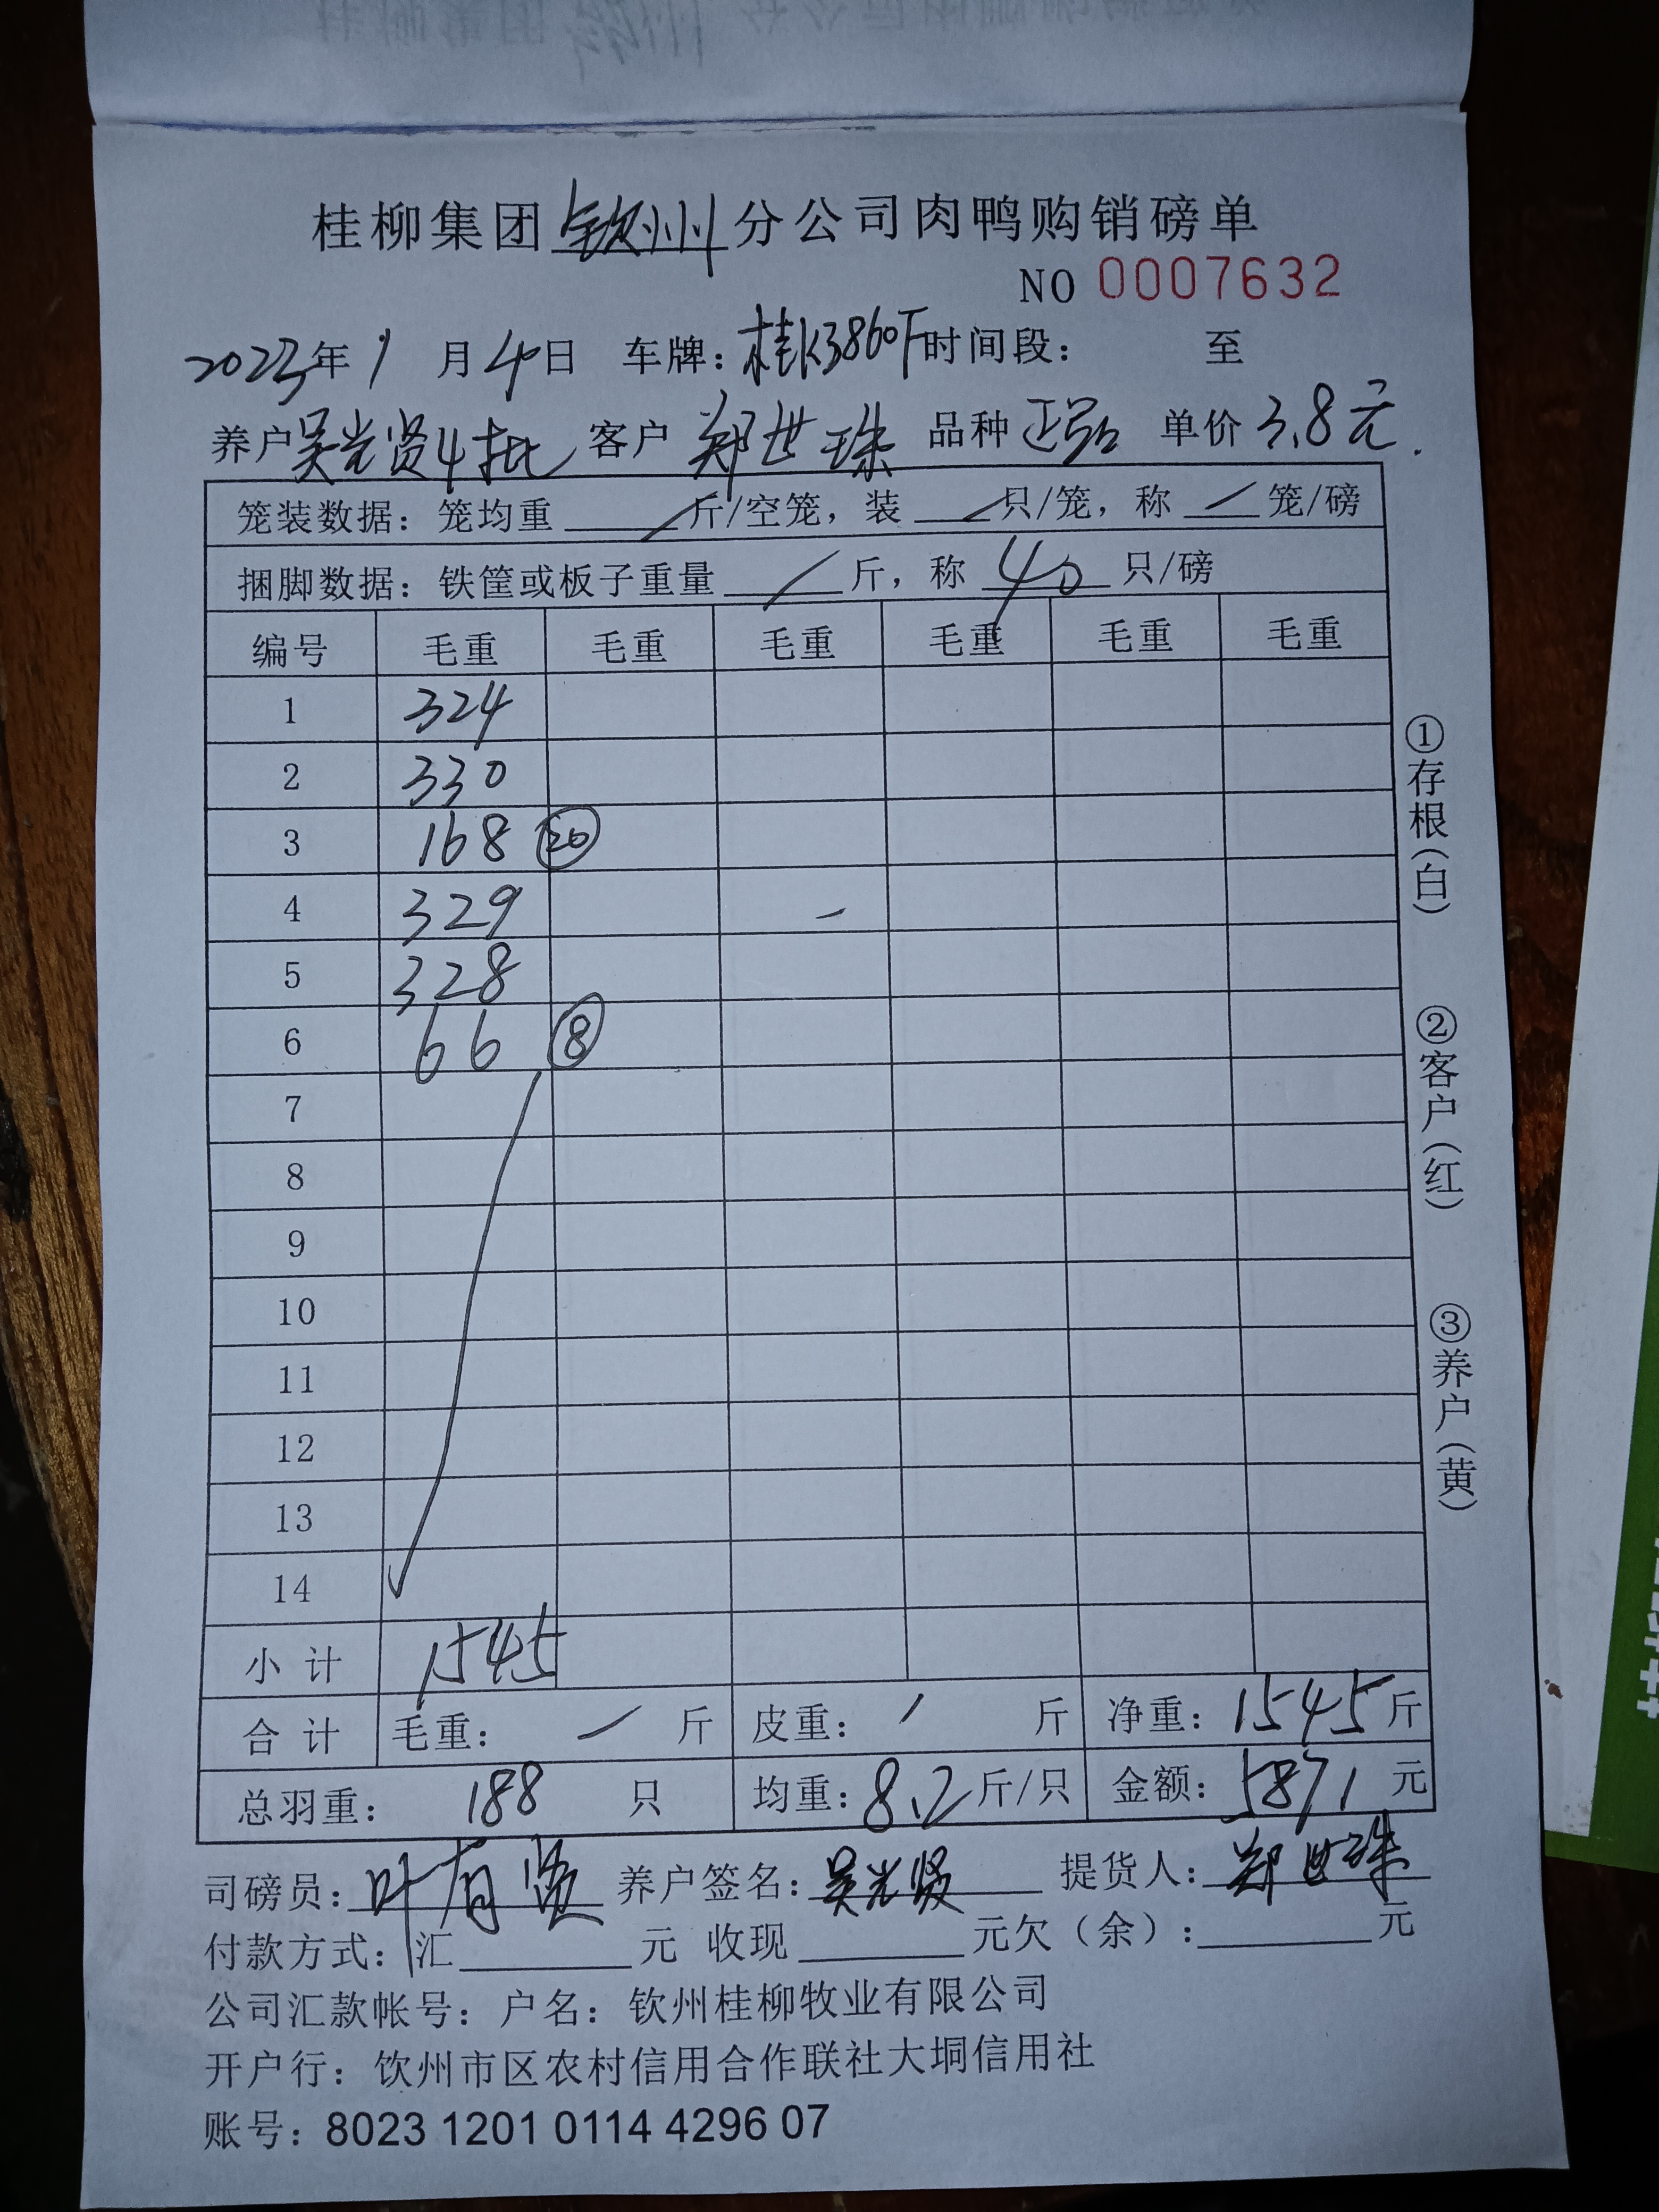 桂柳集团钦州分公司肉鸭购销磅单
NO 0007632
2023年1月4日 车牌：桂K3860F时间段： 至
养户吴光贤4批 客户 郑世珠 品种 正号 单价 3.8元.
笼装数据：笼均重 / 斤/空笼，装 / 只/笼，称 / 笼/磅
捆脚数据：铁筐或板子重量 / 斤，称 40 只/磅
编号 毛重 毛重 毛重 毛重 毛重 毛重
1 324
2 330
3 168 20
4 329
5 328
6 66 8
7
8
9
10
11
12
13
14
小计 1545
合计 毛重： / 斤 皮重： / 斤 净重：1545斤
总羽重： 188 只 均重：8.2斤/只 金额：5871元
司磅员：叶有贤 养户签名：吴光贤 提货人：郑世珠
付款方式：汇 元 收现 元欠（余）： 元
公司汇款帐号：户名：钦州桂柳牧业有限公司
开户行：钦州市区农村信用合作联社大垌信用社
账号：8023 1201 0114 4296 07
①存根（白）
②客户（红）
③养户（黄）